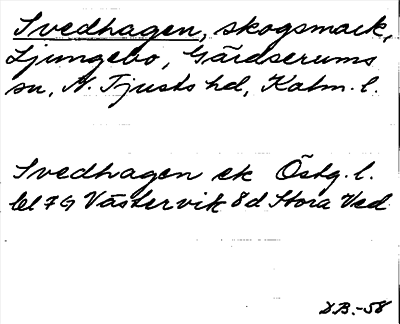 Svedhagen, skogsmark,
Ljungebo, Gärdserums
sn, N. Tjusts hd, Kalm. l.
Svedhagen ek Östg. l.
bl 7G Västervik 8d Stora Ved
DB.-58